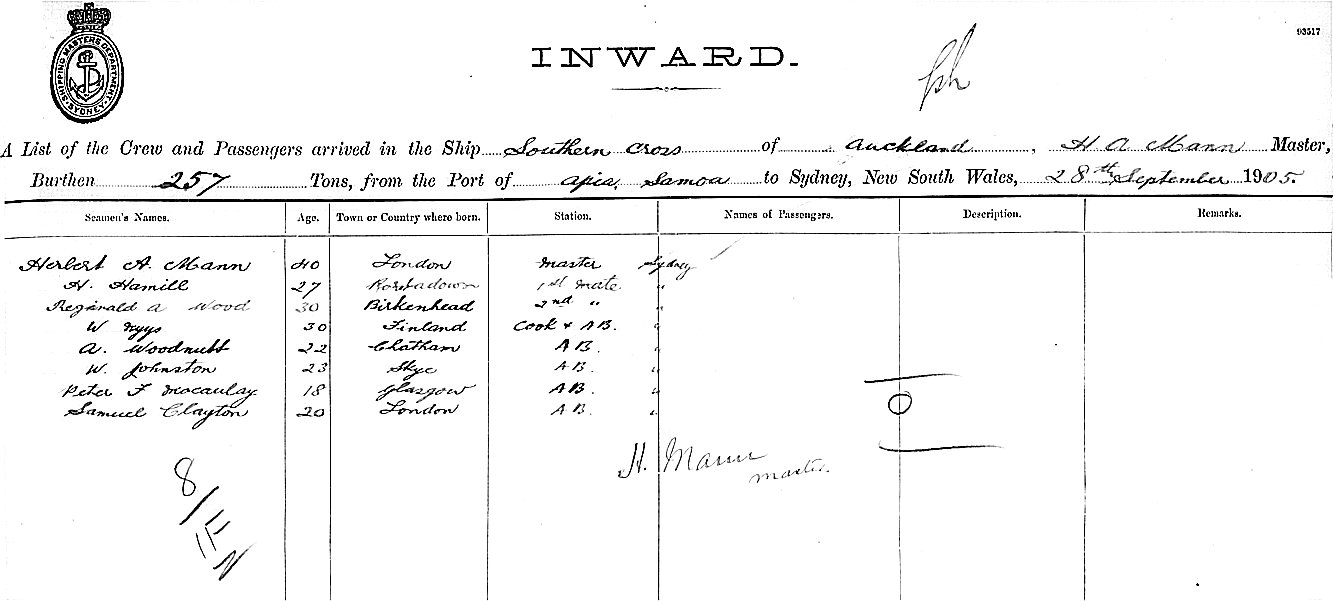 SHIPPING MASTERS DEPARTMENT SYDNEY
93517
INWARD.
A List of the Crew and Passengers arrived in the Ship Southern Cross of Auckland, H A Mann Master,
Burthen 257 Tons, from the Port of Apia, Samoa to Sydney, New South Wales, 28th September 1905.
Seamen's Names. Age. Town or Country where born. Station. Names of Passengers. Description. Remarks.
Herbert A. Mann 40 London Master Sydney
H. Hamill 27 Portadown 1st Mate "
Reginald A Wood 30 Birkenhead 2nd " "
W 30 Finland Cook & AB. "
A. Woodnutt 22 Chatham AB. "
W. Johnston 23 Skye AB. "
Peter F Macaulay 18 Glasgow AB. "
Samuel Clayton 20 London AB. "
O
H. Mann
master.
8/